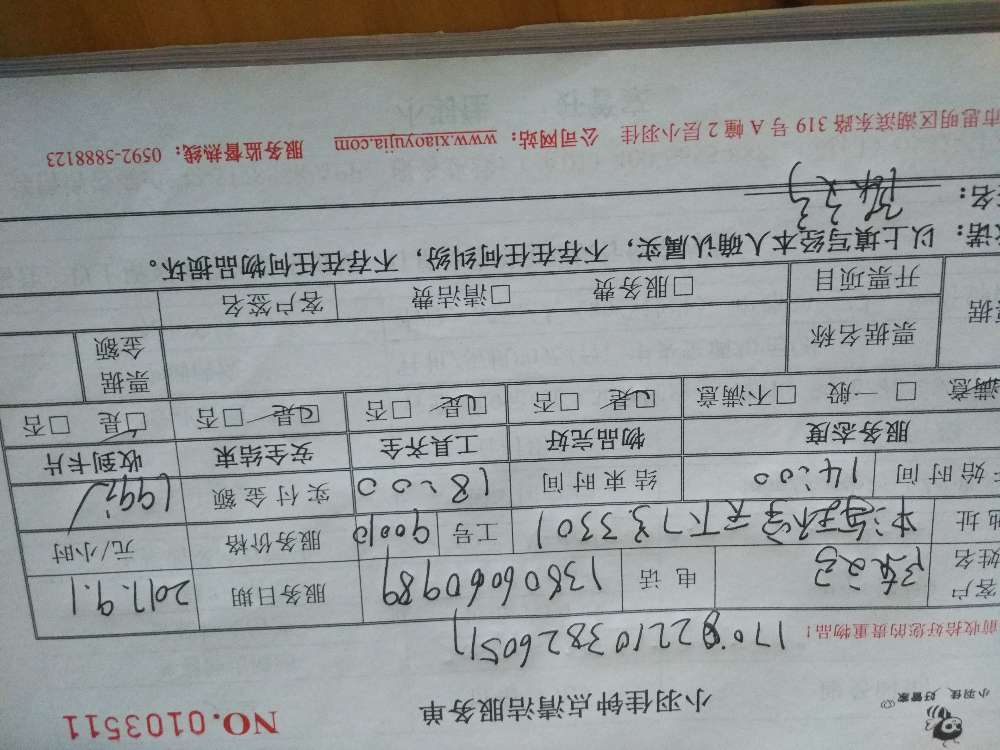 小羽佳 好管家
小羽佳钟点清洁服务单 NO.0103511
前收拾好您的贵重物品！ 1708221038260517
客户姓名 电话 13806060989 服务日期 2017.9.1
地址 3301 工号 90010 服务价格 元/小时
始时间 14:00 结束时间 18:00 实付金额 199
服务态度 物品完好 工具齐全 安全结束 收到卡片
满意 □一般 □不满意 □是 □否 □是 □否 □是 □否 □是 □否
票据名称 票据金额
开票项目 □服务费 □清洁费 客户签名
诺：以上填写经本人确认属实，不存在任何纠纷，不存在任何物品损坏。
名：
市思明区湖滨东路 319 号 A 幢 2 层小羽佳 公司网站：www.xiaoyujia.com 服务监督热线：0592-5888123